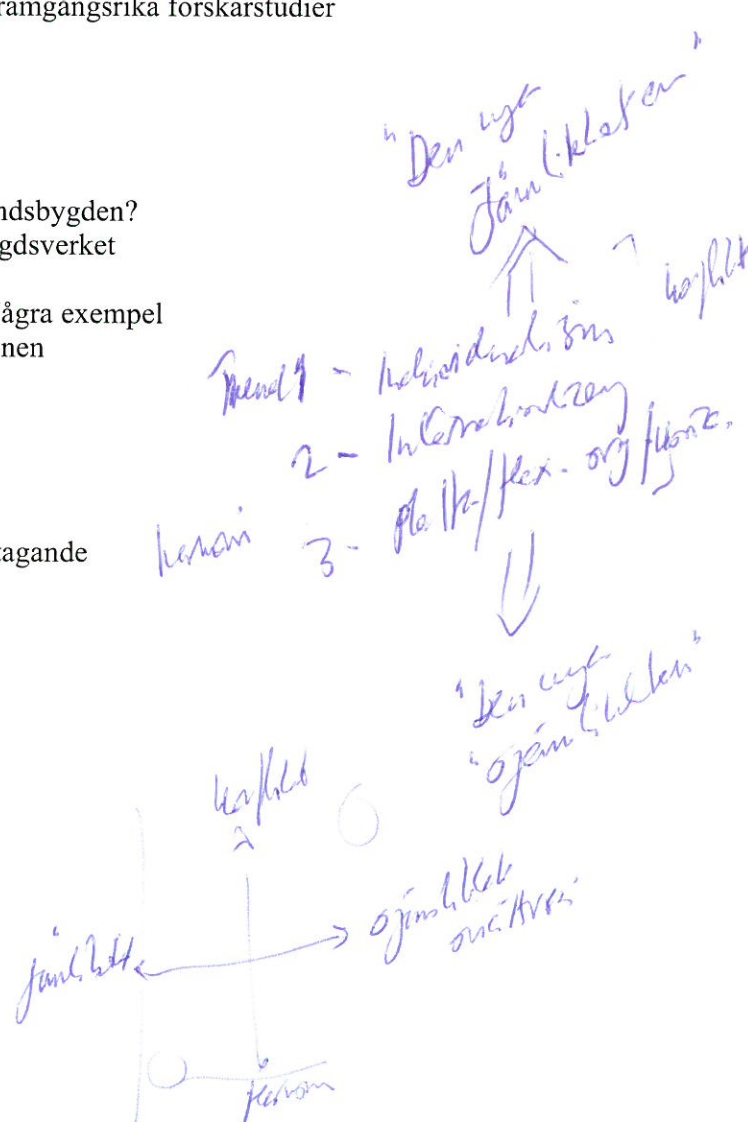 ramgångsrika forskarstudier
ndsbygden?
gdsverket
ågra exempel
nen
tagande
"Den nya
Jämlikheten"
konflikt
Trend 1 - Individualism
2 - Internationalisering
3 - Platta/flex. org/horiz.
"Den nya
"ojämlikheten"
konflikt
jämlikhet
ojämlikhet
orättvisa